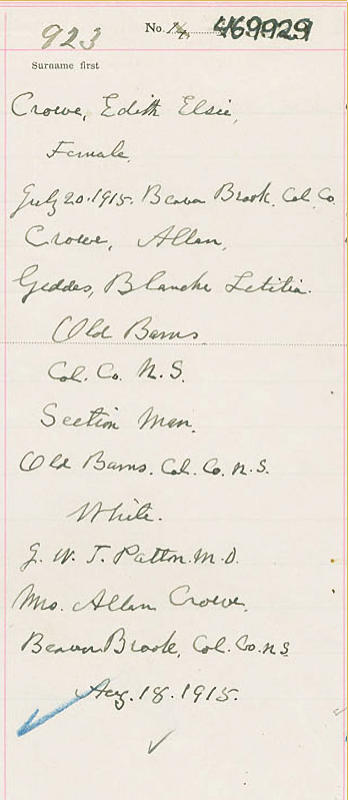 923 No. 14 469929
Surname first
Crowe, Edith Elsie,
Female,
July 20. 1915. Beaver Brook, Col. Co.
Crowe, Allan,
Geddes, Blanche Letitia.
Old Barns
Col. Co. N. S.
Section Man.
Old Barns. Col. Co. N. S.
White.
G. W. T. Patton. M. D.
Mrs. Allan Crowe,
Beaver Brook, Col. Co. N S
Aug. 18. 1915.